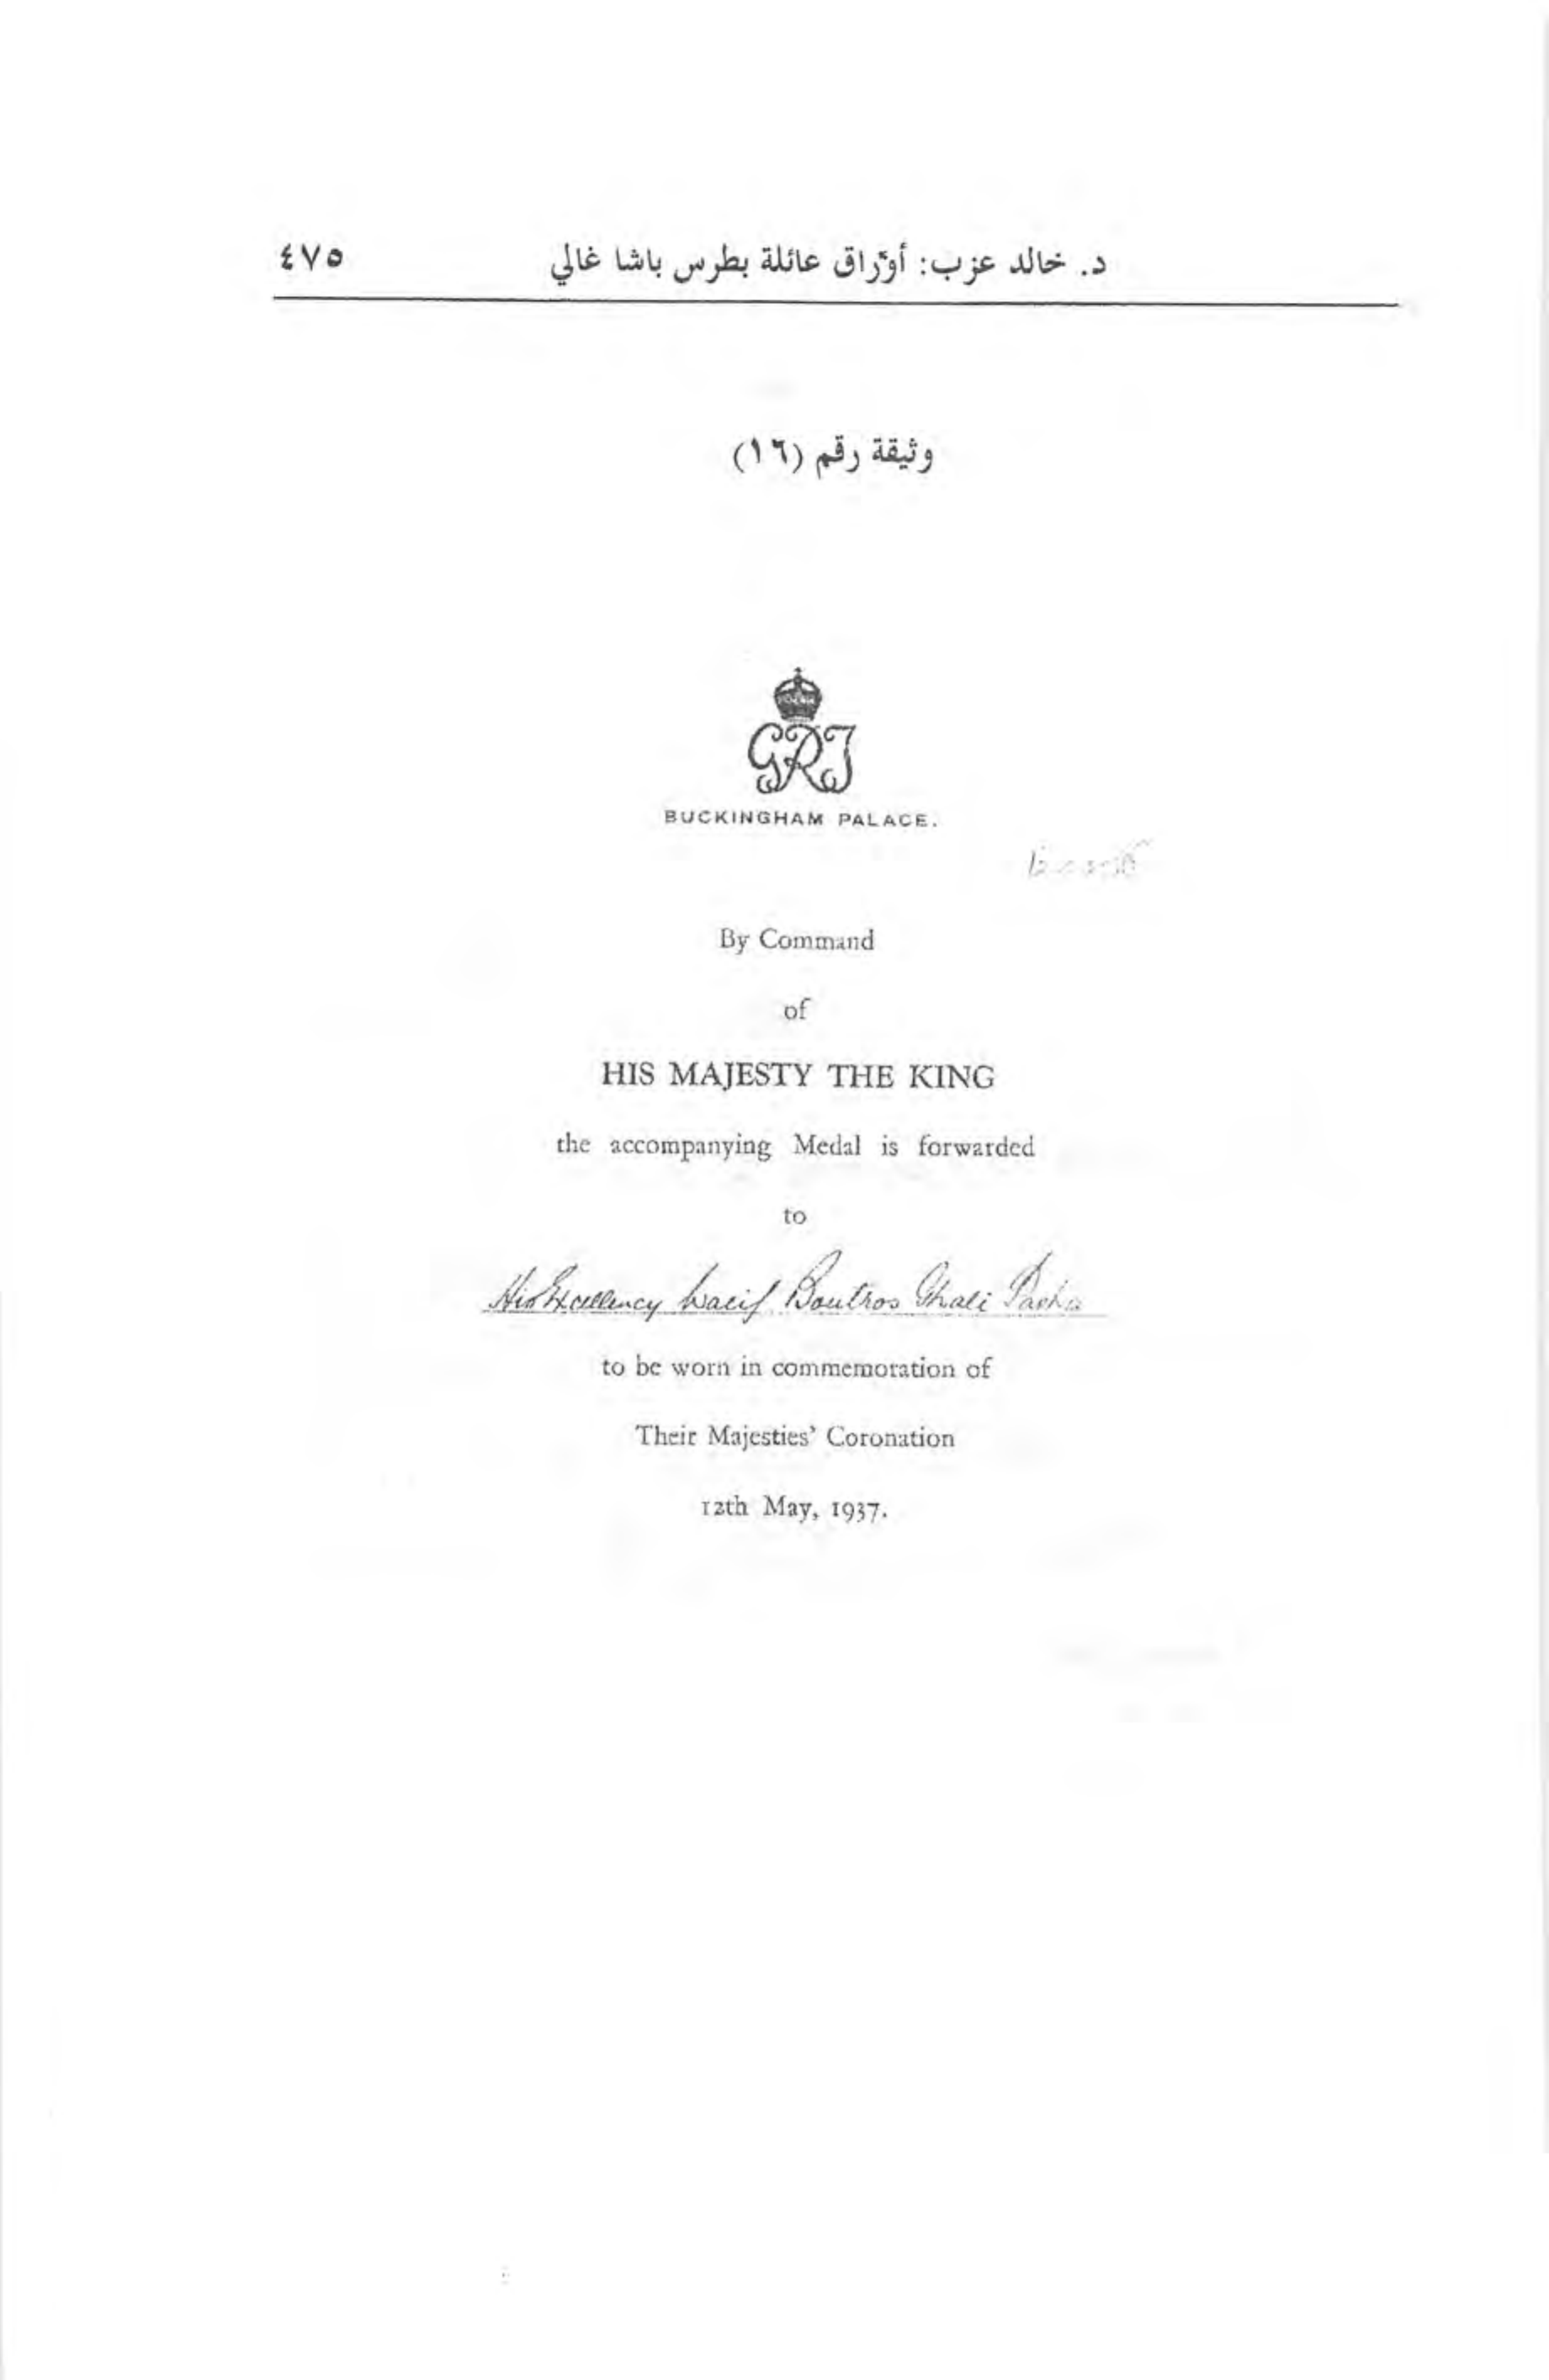 د. خالد عزب: أوراق عائلة بطرس باشا غالي ٤٧٥
وثيقة رقم (١٦)
GRI
BUCKINGHAM PALACE.
By Command
of
HIS MAJESTY THE KING
the accompanying Medal is forwarded
to
His Excellency Wacif Boutros Ghali Pasha
to be worn in commemoration of
Their Majesties' Coronation
12th May, 1937.